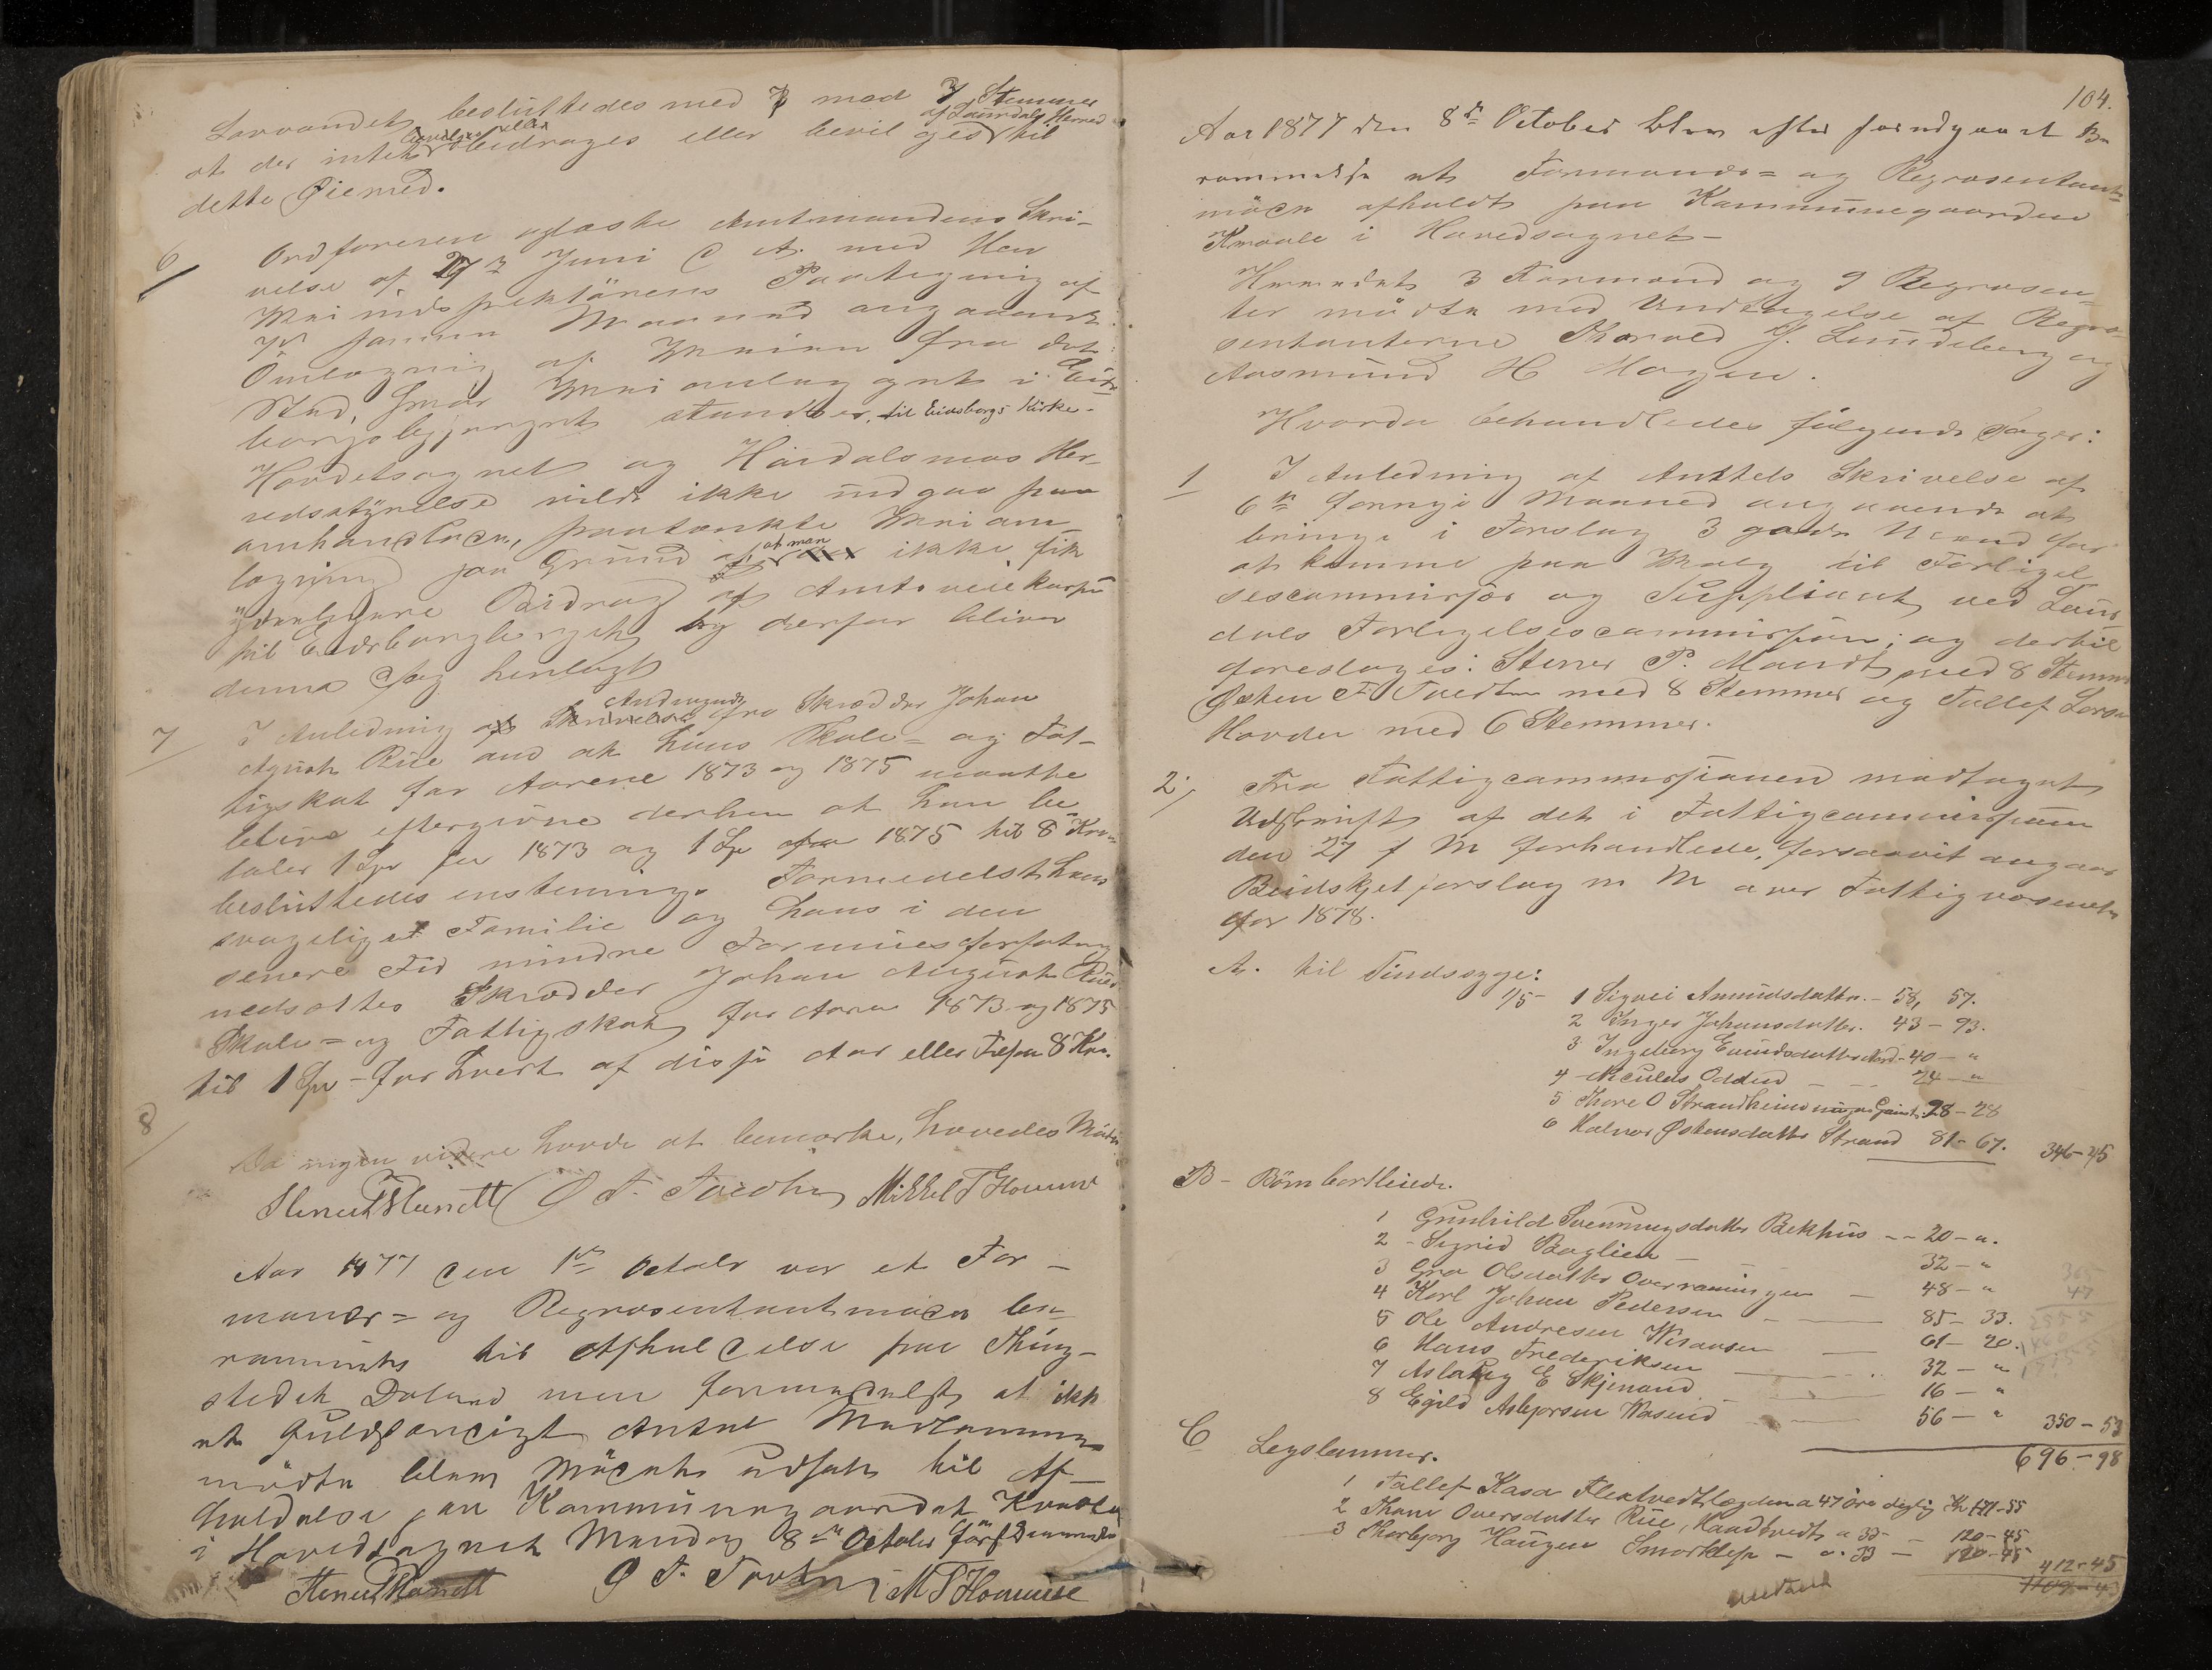 besluttedes med 7 mod 7 Stemmer
af Laurdals Herred
at der intet bedrages eller bevilges til
dette Øiemed.
6 Ordføreren oplæste Amtmandens Skri-
velse af 27de Juni d. A. med Hen
Veiinspektørens Paategning af
angaaende
Omlægning af Veien fra det
Sted, hvor Veianlægget i Eids
borgsbygget standser, til Eidsborgs Kirke.
Hovedsognet og Høidalsmos Her-
redsstyrelse vilde ikke indgaa paa
omhandlede, paatænkte Veiom-
lægning paa Grund af, at man ikke fik
yderligere Bidrag af Amtsveiekassen
til Eidsborg og derfor bliver
denne Sag henlagt
7 I Anledning af Andragende fra Skrædder Johan
August Riie om at hans Skole- og Fat-
tigskat for Aarene 1873 og 1875 maatte
blive eftergivne derhen at han be-
taler 1 Spd for 1873 og 1 Sp for 1875 til 8 Kro-
besluttedes enstemmig. Formedelst hans
svagelige Familie og hans i den
senere Tid mindre Formuesforfatning
nedsattes Skrædder Johan August Riies
Skole- og Fattigskat for Aaret 1873 og 1875
til 1 Spd - for hvert af disse Aar eller Tilsam 8 Kro.
8
Da ingen videre havde at bemærke, hævedes Mødet
Stener P Mandt Ø T. Tvedten Mikkel T Homme
Aar 1877 den 1ste October var et For-
mands- og Repræsentantmøde be-
rammet til Afholdelse paa Thing-
stedet Dalend men formedelst at ikke
et fuldstændigt Antal Medlemmer
mødte blev Mødet udsat til Af-
holdelse paa Kommunegaarden Kvaale
i Hovedsognet Mandag 8de October førstkommende
Stener P Mandt Ø T. Tvedten M T Homme
104.
Aar 1877 den 8de October blev efter foregaaet Be
rammelse et Formands- og Repræsentant
møde afholdt paa Kommunegaarden
Kvaale i Hovedsognet -
Herredets 3 Formænd og 9 Repræsen-
ter mødte med Undtagelse af Repræ-
sentanterne Thorald J. Lundeberg og
Aasmund H Mogen.
Hvorda behandledes følgende Sager:
1 I Anledning af Amtets Skrivelse af
6te forrige Maaned angaaende at
bringe i Forslag 3 gode Mænd for
at komme paa Valg til Forligel
sescommissær og Suppleant ved Laur
dals Forligelsescommission; og dertil
foreslages: Stener P. Mandt med 8 Stemmer
Østen T Tvedten med 8 Stemmer og Tallef Lars
Hovden med 6 Stemmer.
2 Fra Fattigcommissionen modtaget
Udskrift af det i Fattigcommissionen
den 27 f M forhandlede, forsaavit angaar
Budsjetforslag m M over Fattigvæsenet
for 1878.
A. til Sindssyge:
1/5 - 1 Signei Amundsdatter. - 58, 57.
2 Inger Johansdatter. 43 - 93.
3 Ingeborg Eivindsdatter Nord - 40 - "
4 Odden - 24 - "
5 Thore O Strandheim 98 - 28
6 Halvor Østensdatter Strand 81 - 67. 346-45
B - Børn bortleiede.
1 Gunhild Svenningsdatter Bekhus -- 20 - ".
2 - Sigrid Boglien - 32 - "
3 Gro Olsdatter Overraningen - 48 - "
4 Karl Johan Pedersen - 85 - 33.
5 Ole Andresen Wisausen - 61 - 20.
6 Hans Frederiksen - 32 - "
7 Aslaug E Skjenand - 16 - "
8 Egild Asbjørsen Wasend - 56 - " 350 - 53
696 - 98
C Legslemmer.
1 Tallef Kasa Flextvedtlægden a 47 øre daglig Kr 171-55
2 Thone Oversdatter Riie, Haadtvedt a 33 - 120-45
3 Thorbjorg Haugen Smørklep - a. 33 - 120-45 412-45
1109-43